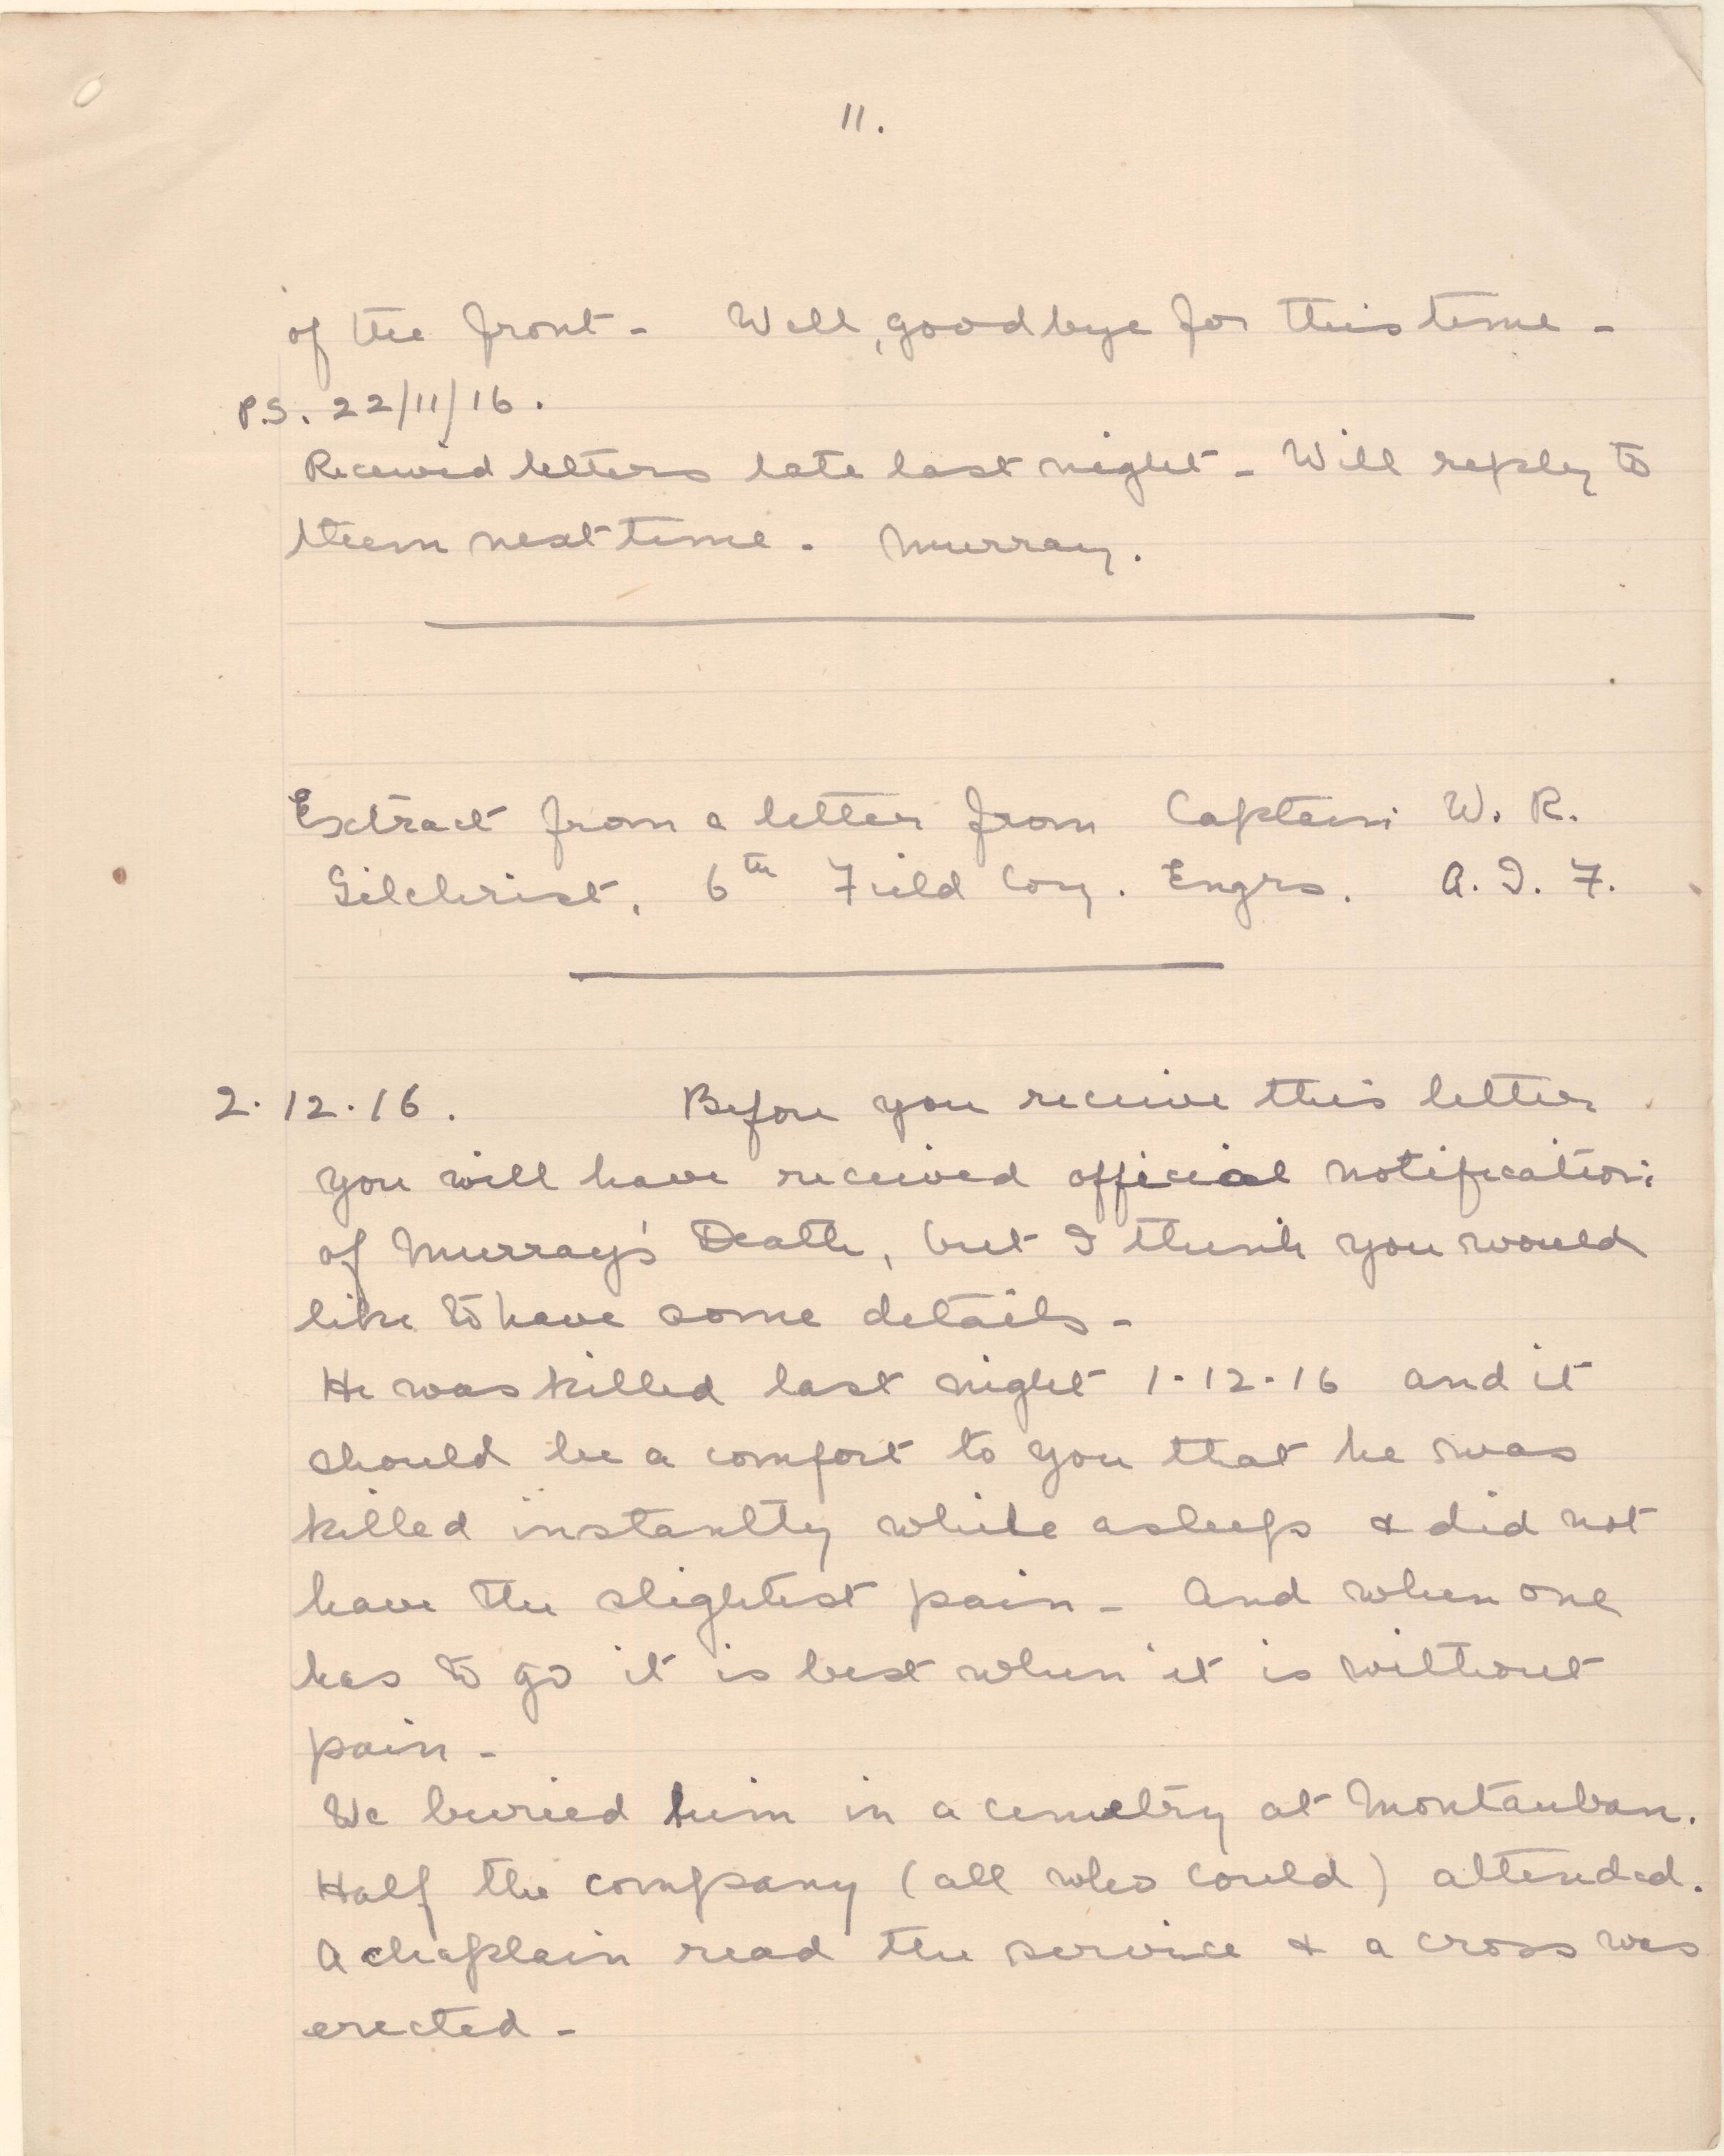 11.
of the front - Well, goodbye for this time -
P.S. 22/11/16.
Received letters late last night - Will reply to
them next time. Murray.
Extract from a letter from Captain W. R.
Gilchrist, 6th Field Coy. Engrs. A. I. F.
2.12.16. Before you receive this letter
you will have received official notification
of Murray's Death, but I think you would
like to have some details -
He was killed last night 1.12.16 and it
should be a comfort to you that he was
killed instantly while asleep & did not
have the slightest pain - And when one
has to go it is best when it is without
pain -
We buried him in a cemetry at Montauban.
Half the company (all who could) attended.
A chaplain read the service & a cross was
erected -